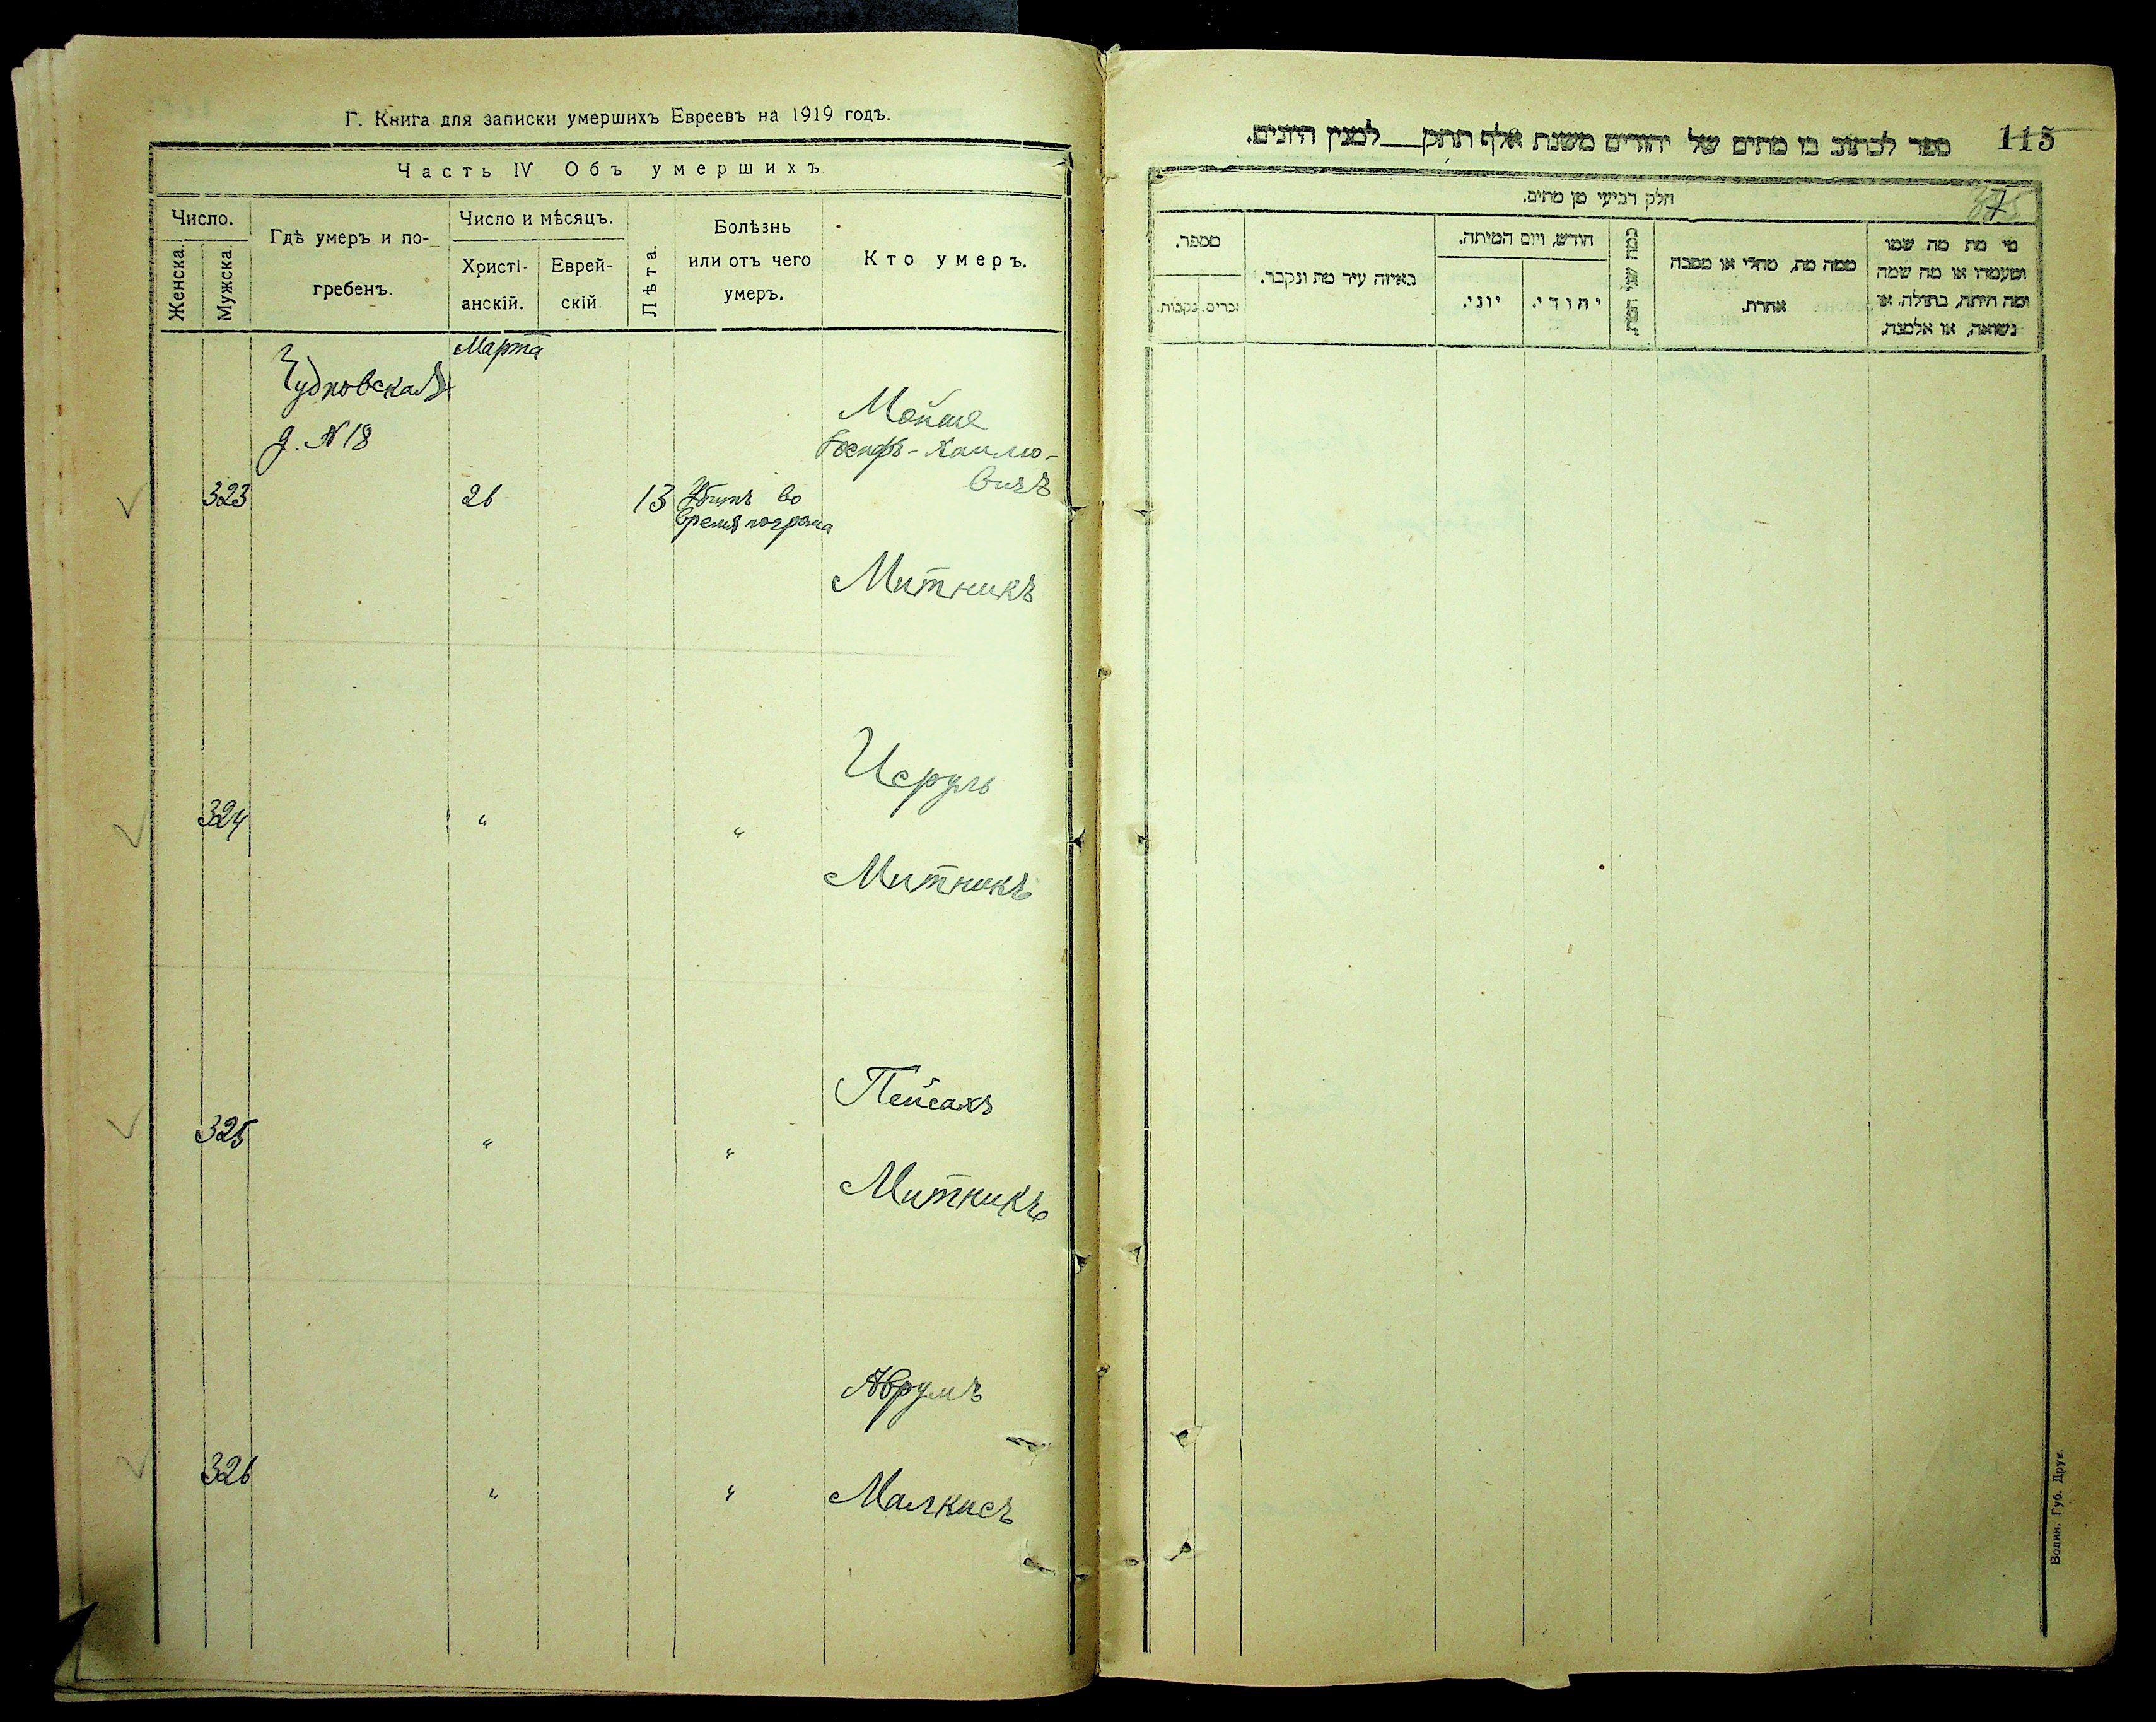 Г. Книга для записки умершихъ Евреевъ на 1919 годъ.
Часть IV Объ умершихъ.
Число.
Женска.
Мужска.
Гдѣ умеръ и по-
гребенъ.
Число и мѣсяцъ.
Христі-
анскій.
Еврей-
скій.
Лѣта.
Болѣзнь
или отъ чего
умеръ.
Кто умеръ.
Марта
Чудновская
д. N 18
323
26
13
Убитъ во
время погрома
Мойше
Іосифъ-Хаимо-
вичъ
Митникъ
324
"
"
Исруль
Митникъ
325
"
"
Пейсахъ
Митникъ
326
"
"
Аврумъ
Малкисъ
115
ספר לכתוב בו מתים של יהודים משנת אלף תתק למנין היונים.
חלק רביעי מן מתים.
מספר.
זכרים.
נקבות.
באיזה עיר מת ונקבר.
חודש, ויום המיתה.
יוני.
יהודי.
כמה שני
ממה מת, מחלי או מסבה
אחרת.
מי מת מה שמו
ומעמדו או מה שמה
ומה היתה, בתולה, או
נשואה, או אלמנה.
Волин. Губ. Друк.